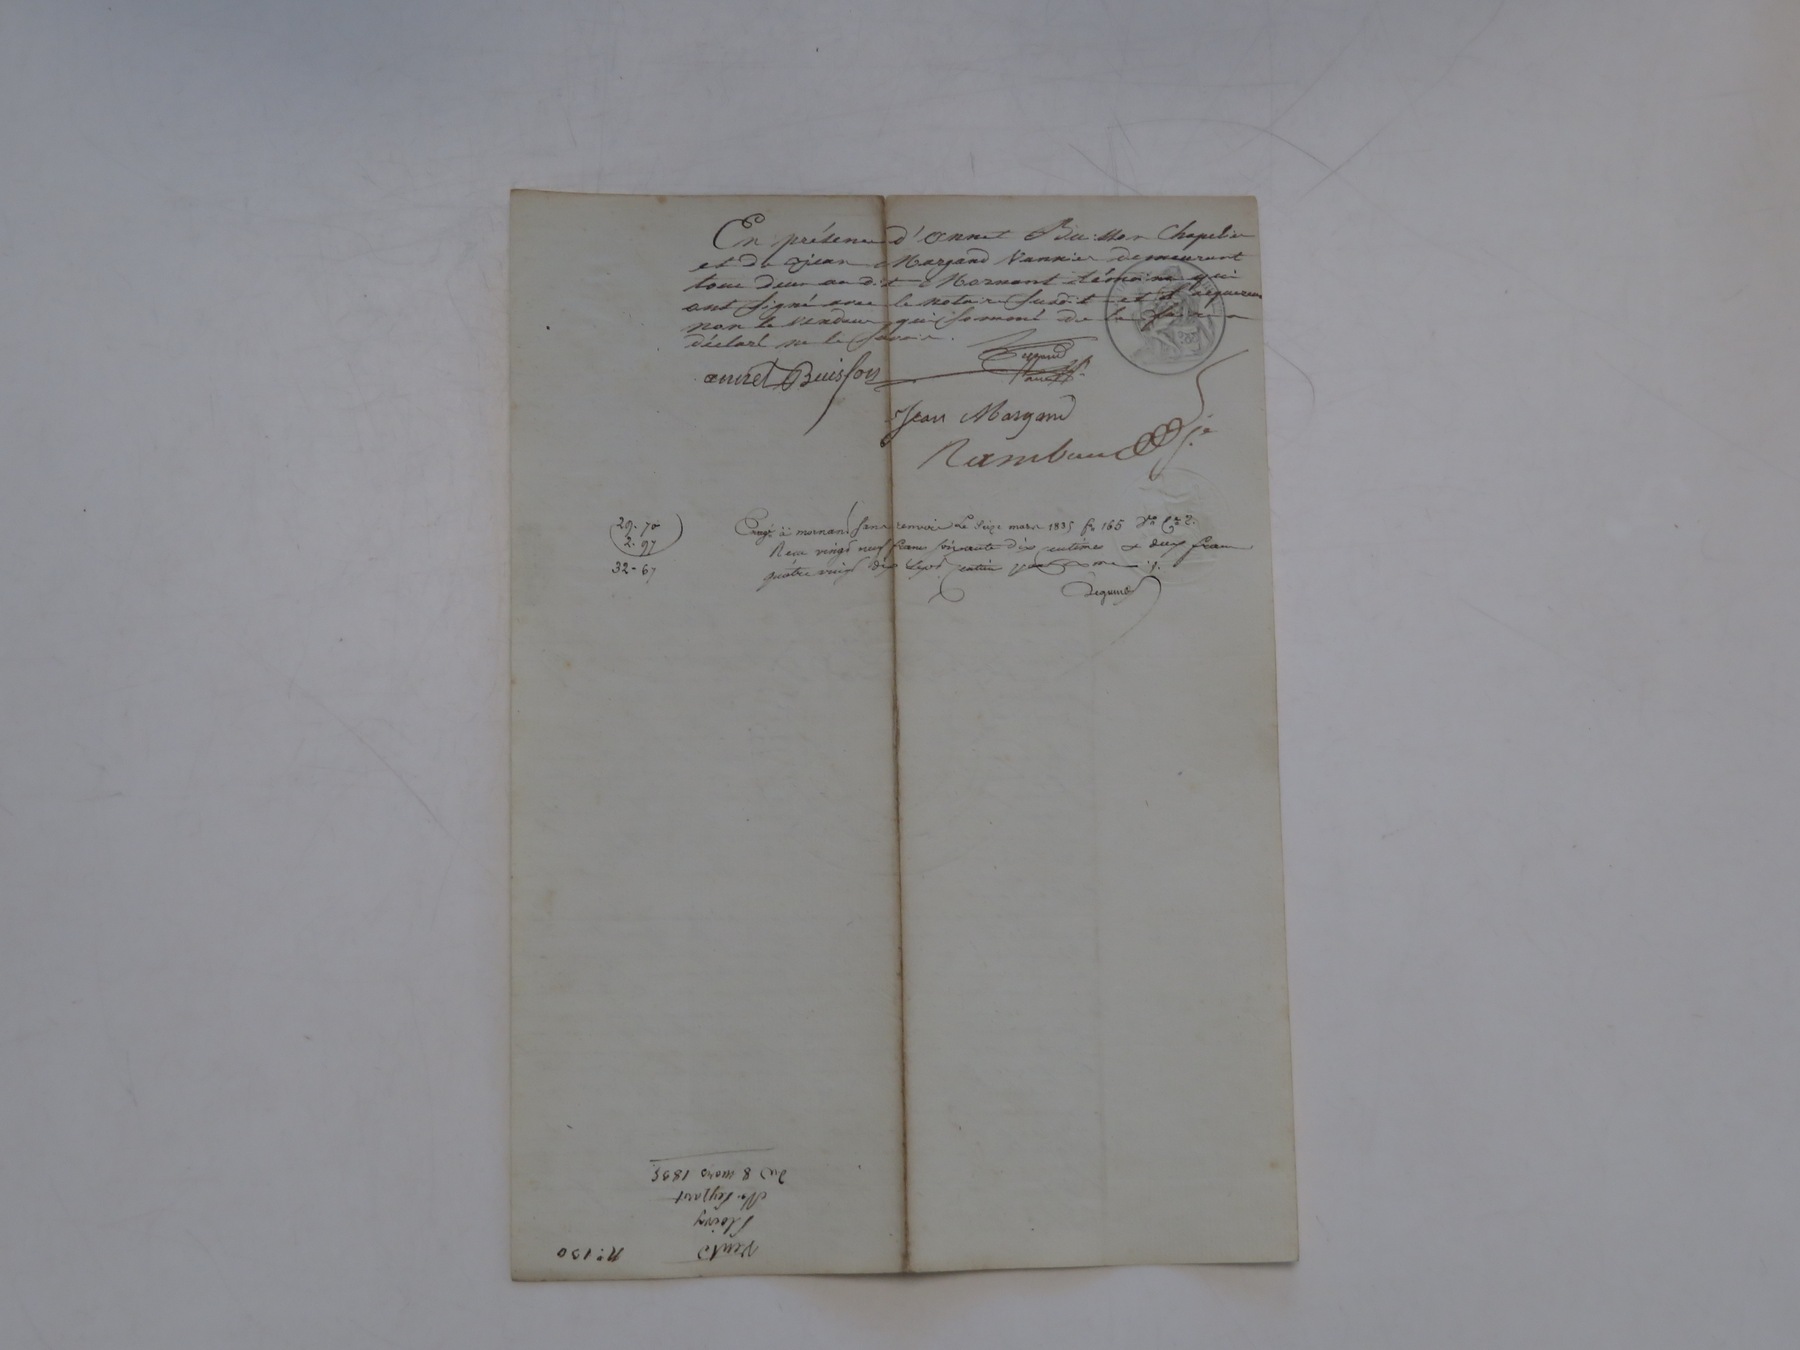 En présence d'Annet Buisson Chapelier
et de Jean Margand Vannier demeurant
tous deux audit Mornant témoins qui
ont signé avec le notaire susdit et l'acquereur
non le vendeur qui sommé de le faire a
déclaré ne le savoir.
annet Buisson
Jean Margand
Rambaud
29. 70
2. 97
32 - 67
Enregé à mornant sans renvoi le Seize mars 1835 fo 165 Vo
Reçu vingt neuf francs soixante dix centimes & deux francs
quatre vingt dix sept centimes
Deguind
No 130
Vente
Fleury
Mr Peyzaret
du 8 mars 1835